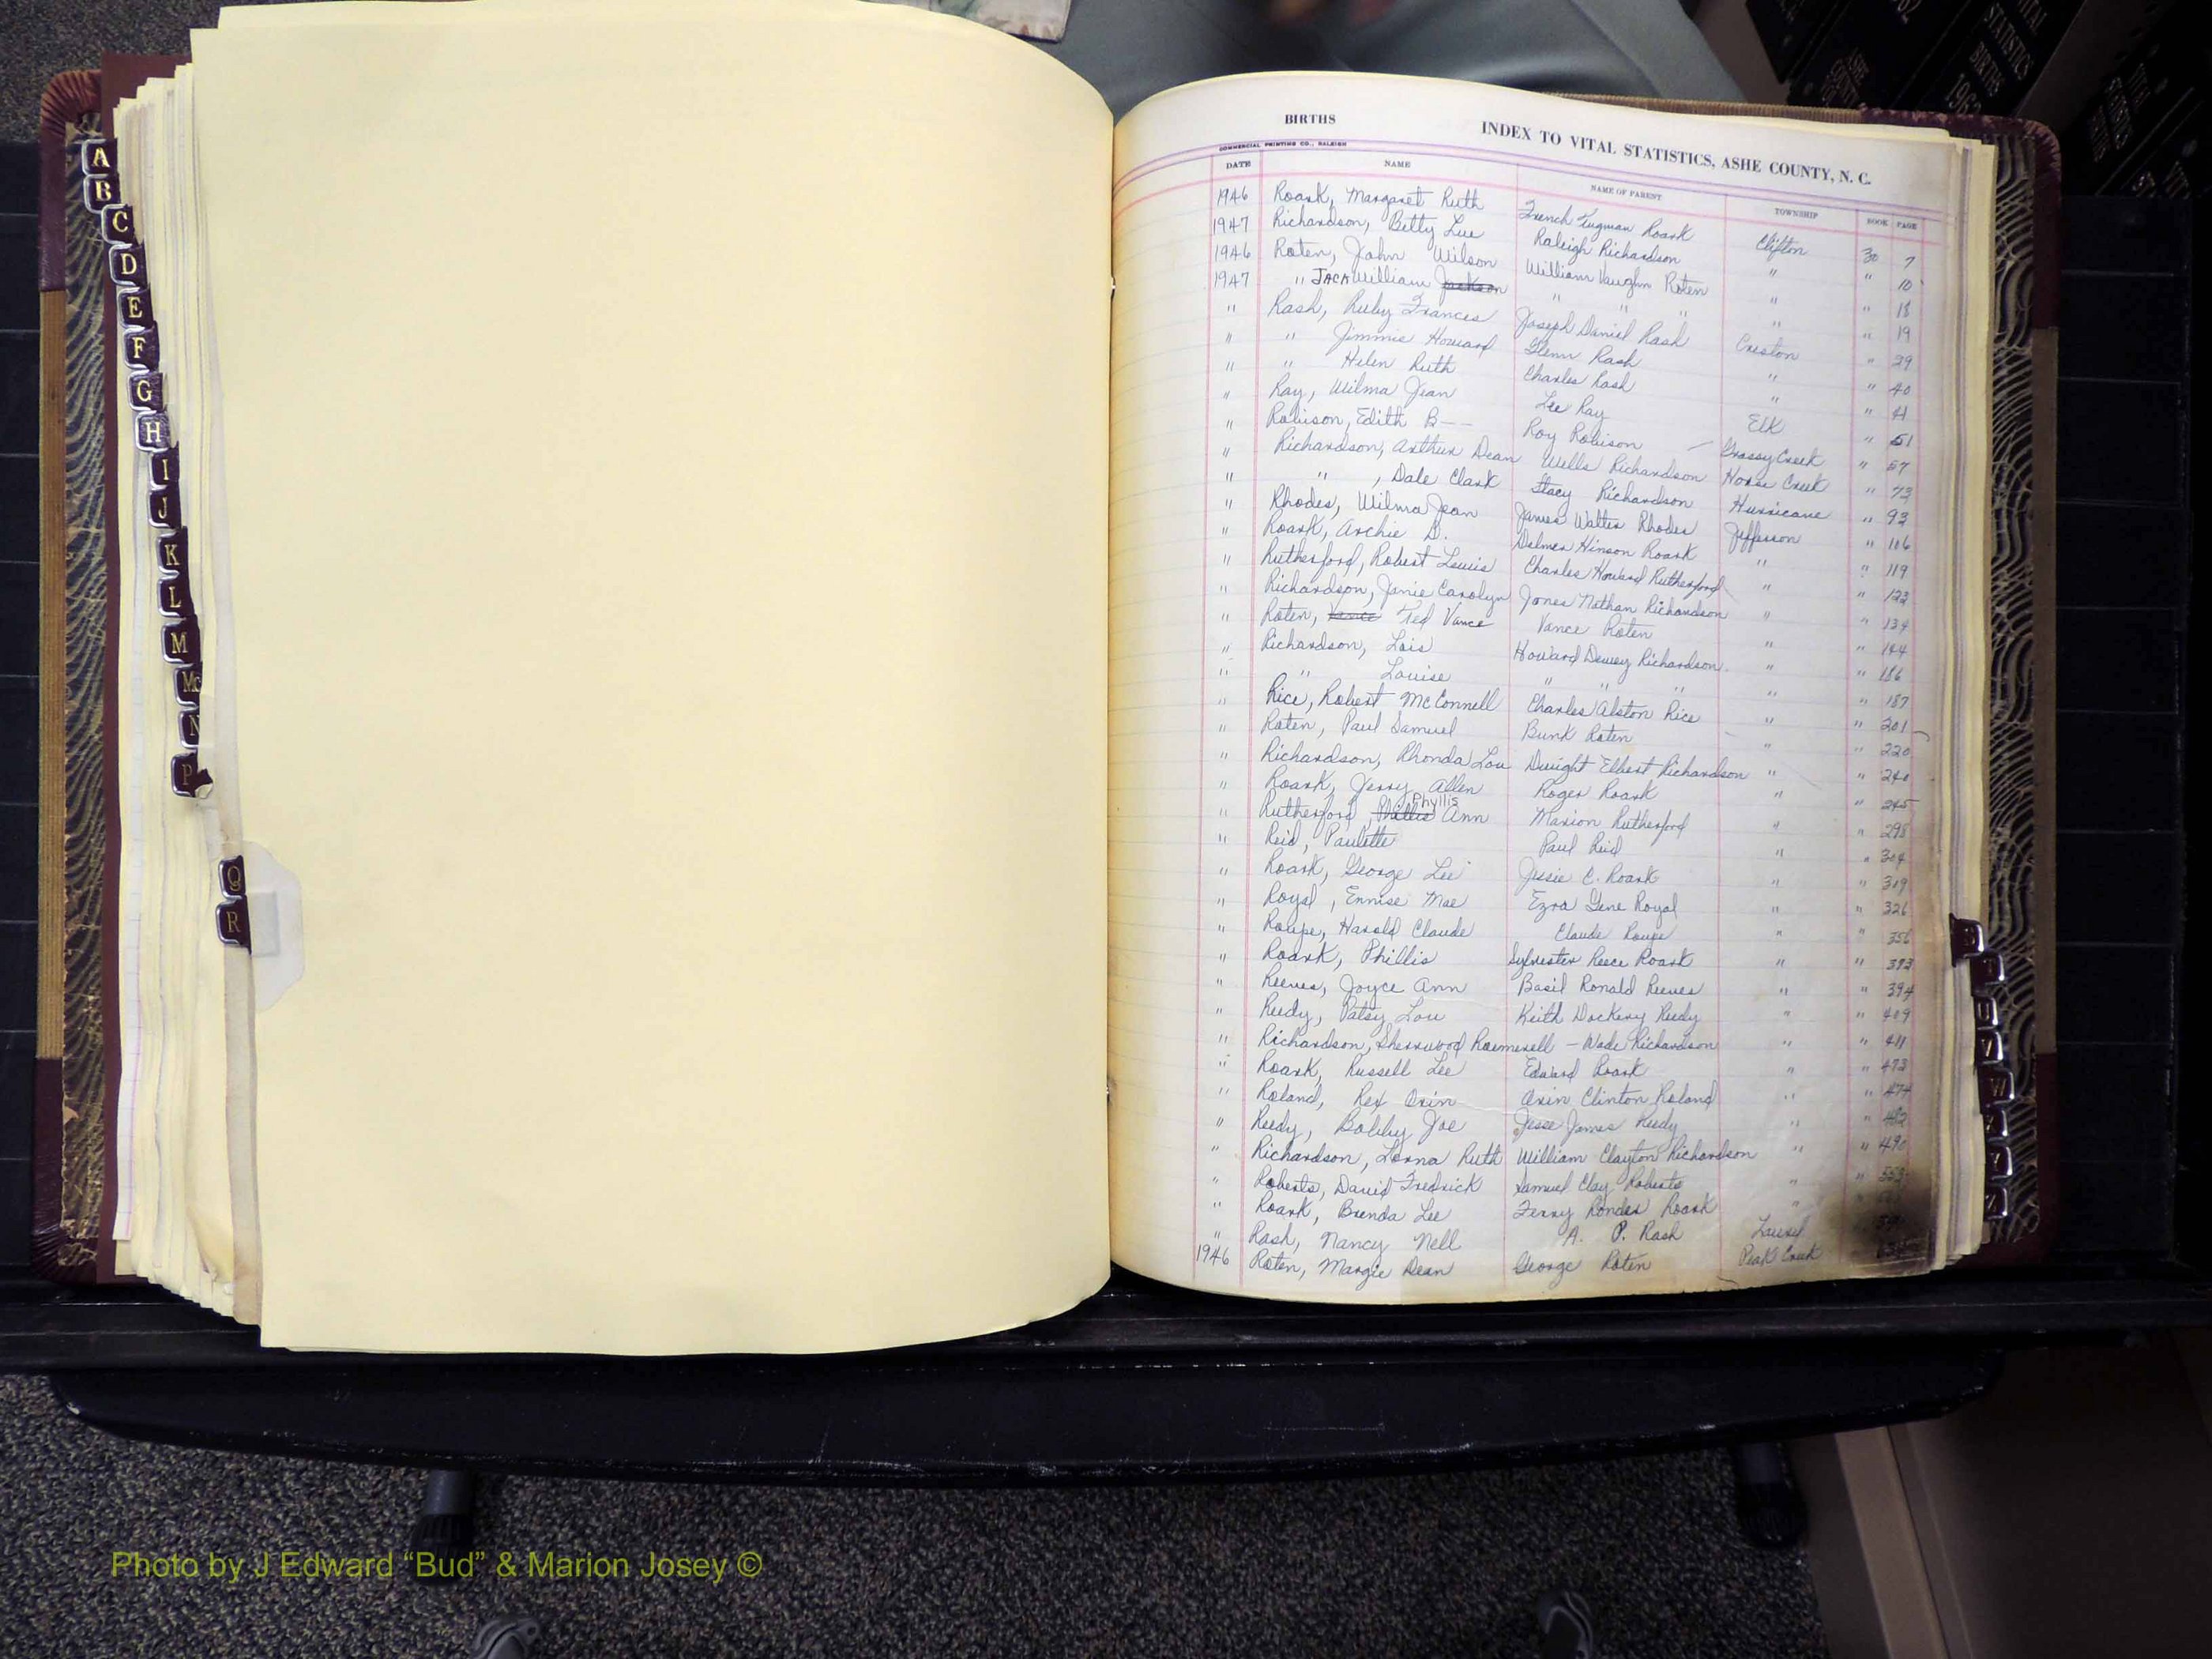 A
B
C
D
E
F
G
H
I
J
K
L
M
Mc
N
P
Q
R
VITAL STATISTICS BIRTHS
BIRTHS INDEX TO VITAL STATISTICS, ASHE COUNTY, N. C.
COMMERCIAL PRINTING CO., RALEIGH
DATE NAME NAME OF PARENT TOWNSHIP BOOK PAGE
1946 Roark, Margaret Ruth French Tugman Roark Clifton 30 7
1947 Richardson, Betty Lue Raleigh Richardson " " 10
1946 Roten, John Wilson William Vaughn Roten " " 18
1947 " JACK William Jackson " " " " " 19
" Rash, Ruby Frances Joseph Daniel Rash Creston " 29
" " Jimmie Howard Glenn Rash " " 40
" " Helen Ruth Charles Rash " " 41
" Ray, Wilma Jean Lee Ray Elk " 51
" Robison, Edith B-- Roy Robison Grassy Creek " 57
" Richardson, Arthur Dean Wells Richardson Horse Creek " 73
" " , Dale Clark Stacy Richardson Hurricane " 93
" Rhodes, Wilma Jean James Walter Rhodes Jefferson " 106
" Roark, Archie D. Delmer Hinson Roark " " 119
" Rutherford, Robert Lewis Charles Howard Rutherford " " 123
" Richardson, Janie Carolyn Jones Nathan Richardson " " 134
" Roten, Vance Ted Vance Vance Roten " " 144
" Richardson, Lois Howard Dewey Richardson " " 186
" " Louise " " " " " 187
" Rice, Robert McConnell Charles Alston Rice " " 201
" Roten, Paul Samuel Bunk Roten " " 220
" Richardson, Rhonda Lou Dwight Elbert Richardson " " 240
" Roark, Jerry Allen Roger Roark " " 245
" Rutherford, Phillis Phyllis Ann Marion Rutherford " " 298
" Reid, Paulette Paul Reid " " 304
" Roark, George Lee Jessie C. Roark " " 319
" Royal, Ennise Mae Ezra Gene Royal " " 326
" Roupe, Harold Claude Claude Roupe " " 356
" Roark, Phillis Sylvester Reece Roark " " 393
" Reeves, Joyce Ann Basil Ronald Reeves " " 394
" Reedy, Patsy Lou Keith Dockery Reedy " " 409
" Richardson, Sherwood - Wade Richardson " " 411
" Roark, Russell Lee Edward Roark " " 473
" Roland, Rex Orin Orin Clinton Roland " " 474
" Reedy, Bobby Joe Jesse James Reedy " " 482
" Richardson, Lorna Ruth William Clayton Richardson " " 490
" Roberts, David Fredrick Samuel Clay Roberts " "
" Roark, Brenda Lee Roark "
" Rash, Nancy Nell A. P. Rash Laurel
1946 Roten, Margie Dean George Roten Peak Creek
T
U
V
W
Y
Z
Photo by J Edward “Bud” & Marion Josey ©